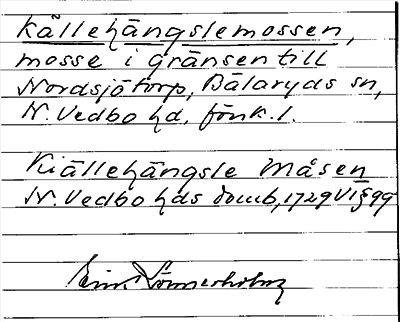 Källehängslemossen,
mosse i gränsen till
Nordsjötorp, Bälaryds sn,
N. Vedbo hd, Jönk. l.
Kiällehängsle Måsen
N. Vedbo hds domb, 1729 VI § 99